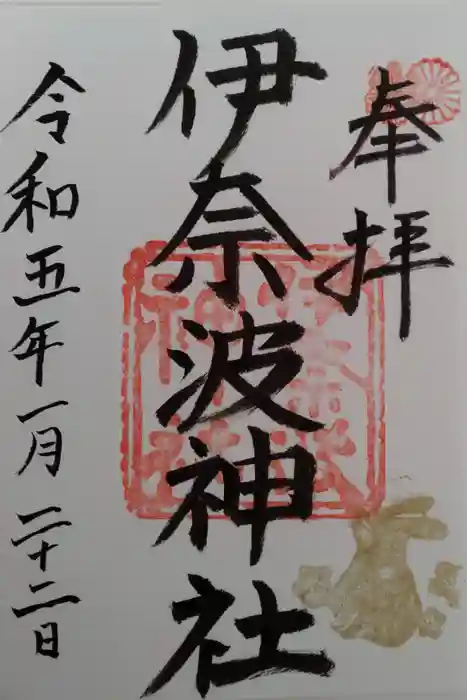 奉拝
伊奈波神社
令和五年一月二十二日